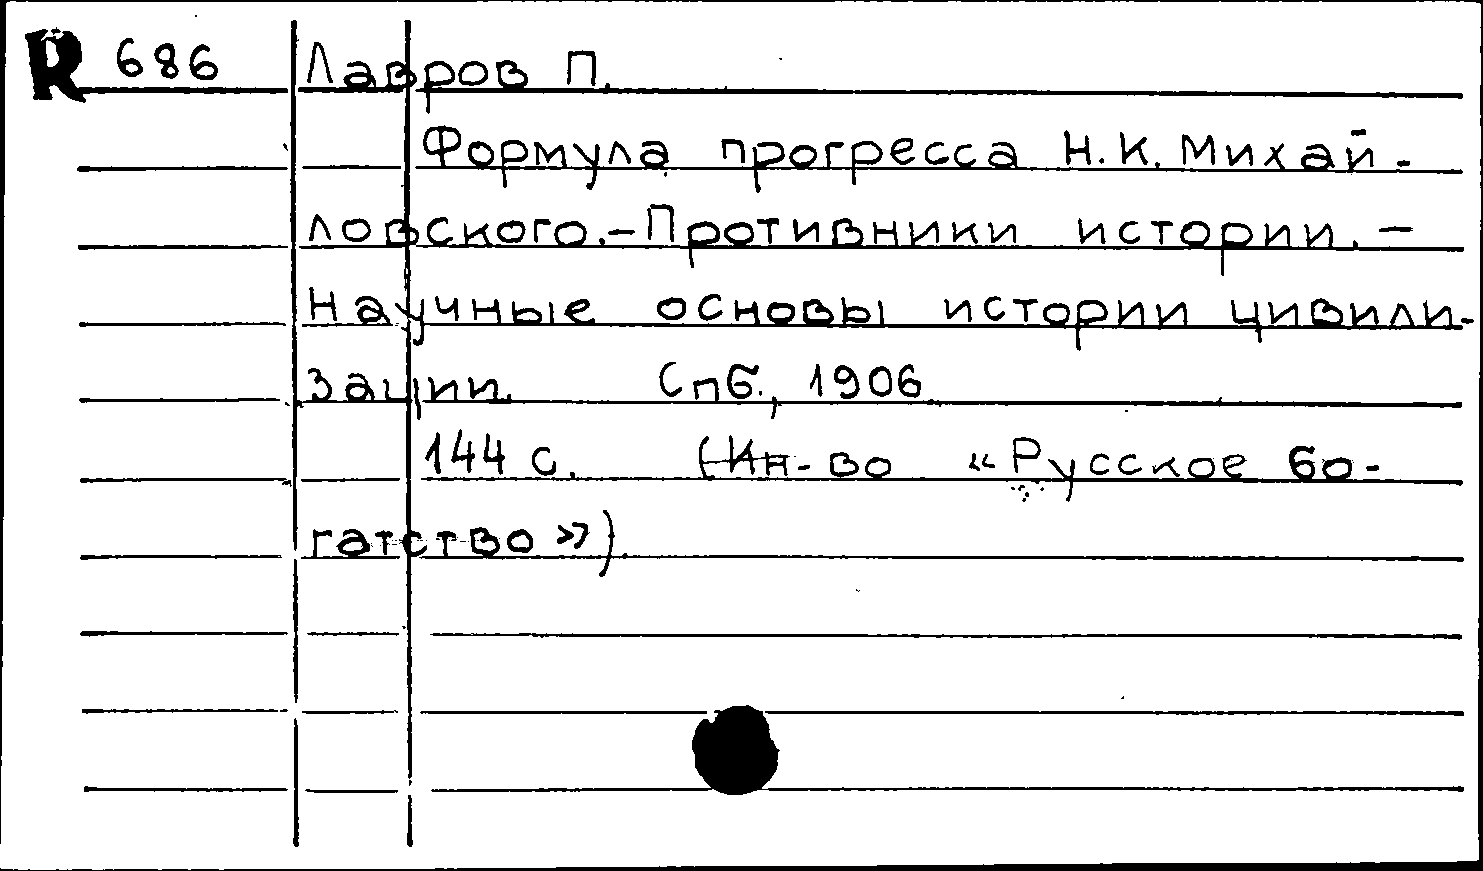 R 686 Лавров П.
Формула прогресса Н.К. Михай-
ловского.-Противники истории. -
Научные основы истории цивили-
зации. Спб., 1906
144 с. (Ин-во «Русское бо-
гатство»).